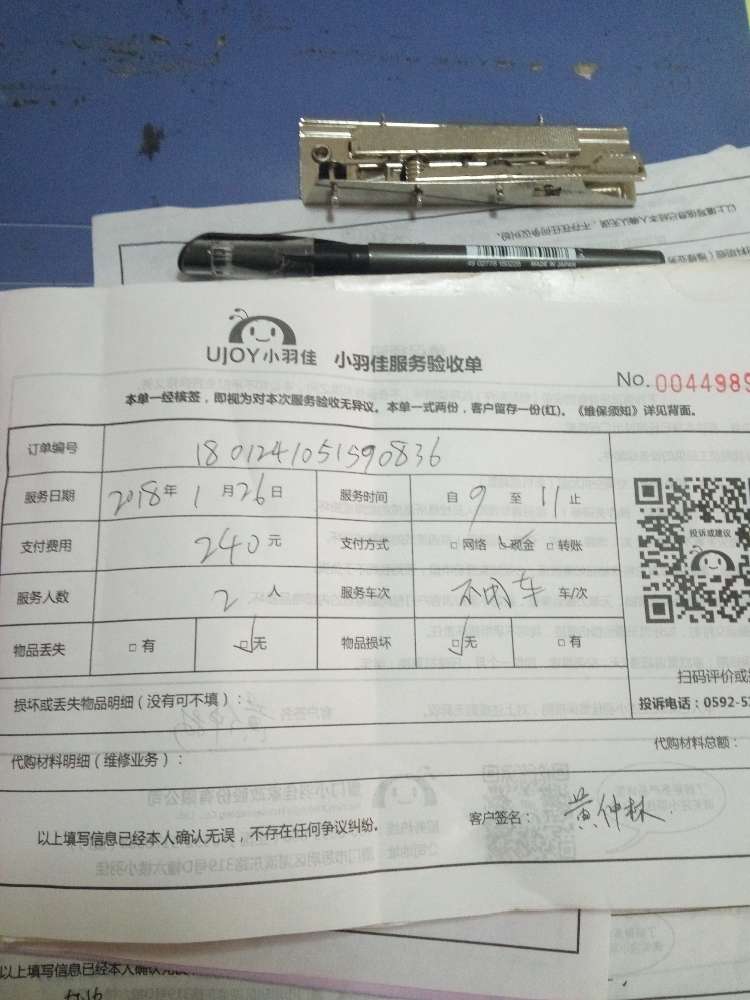 以上填写信息已经本人确认无误，不存在任何争议纠纷。
49 02778 160226 MADE IN JAPAN
UJOY小羽佳 小羽佳服务验收单
No. 0044989
本单一经核签，即视为对本次服务验收无异议。本单一式两份，客户留存一份(红)。《维保须知》详见背面。
订单编号 1801241051590836
服务日期 2018年 1月26日 服务时间 自9至11止
支付费用 240元 支付方式 □网络 □现金 □转账
投诉或建议
服务人数 2人 服务车次 不用车 车/次
物品丢失 □有 □无 物品损坏 □无 □有
扫码评价或
损坏或丢失物品明细（没有可不填）：
投诉电话：0592-5
代购材料明细（维修业务）： 代购材料总额：
以上填写信息已经本人确认无误，不存在任何争议纠纷. 客户签名： 黄仲林
以上填写信息已经本人确认无